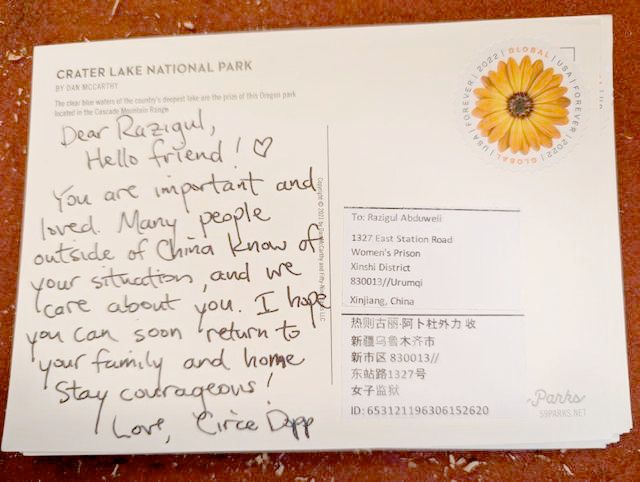 CRATER LAKE NATIONAL PARK
BY DAN MCCARTHY
The clear blue waters of the country's deepest lake are the prize of this Oregon park
located in the Cascade Mountain Range.
Dear Razigul,
Hello friend! ♡
You are important and
loved. Many people
outside of China know of
your situation, and we
care about you. I hope
you can soon return to
your family and home
Stay courageous!
Love, Circe Dopp
Copyright © 2021 by Dan McCarthy and Fifty-Nine Parks LLC
GLOBAL | USA | FOREVER | 2022 | GLOBAL | USA | FOREVER | 2022
To: Razigul Abduweli
1327 East Station Road
Women's Prison
Xinshi District
830013//Urumqi
Xinjiang, China
热则古丽·阿卜杜外力 收
新疆乌鲁木齐市
新市区 830013//
东站路1327号
女子监狱
ID: 653121196306152620
Parks
59PARKS.NET